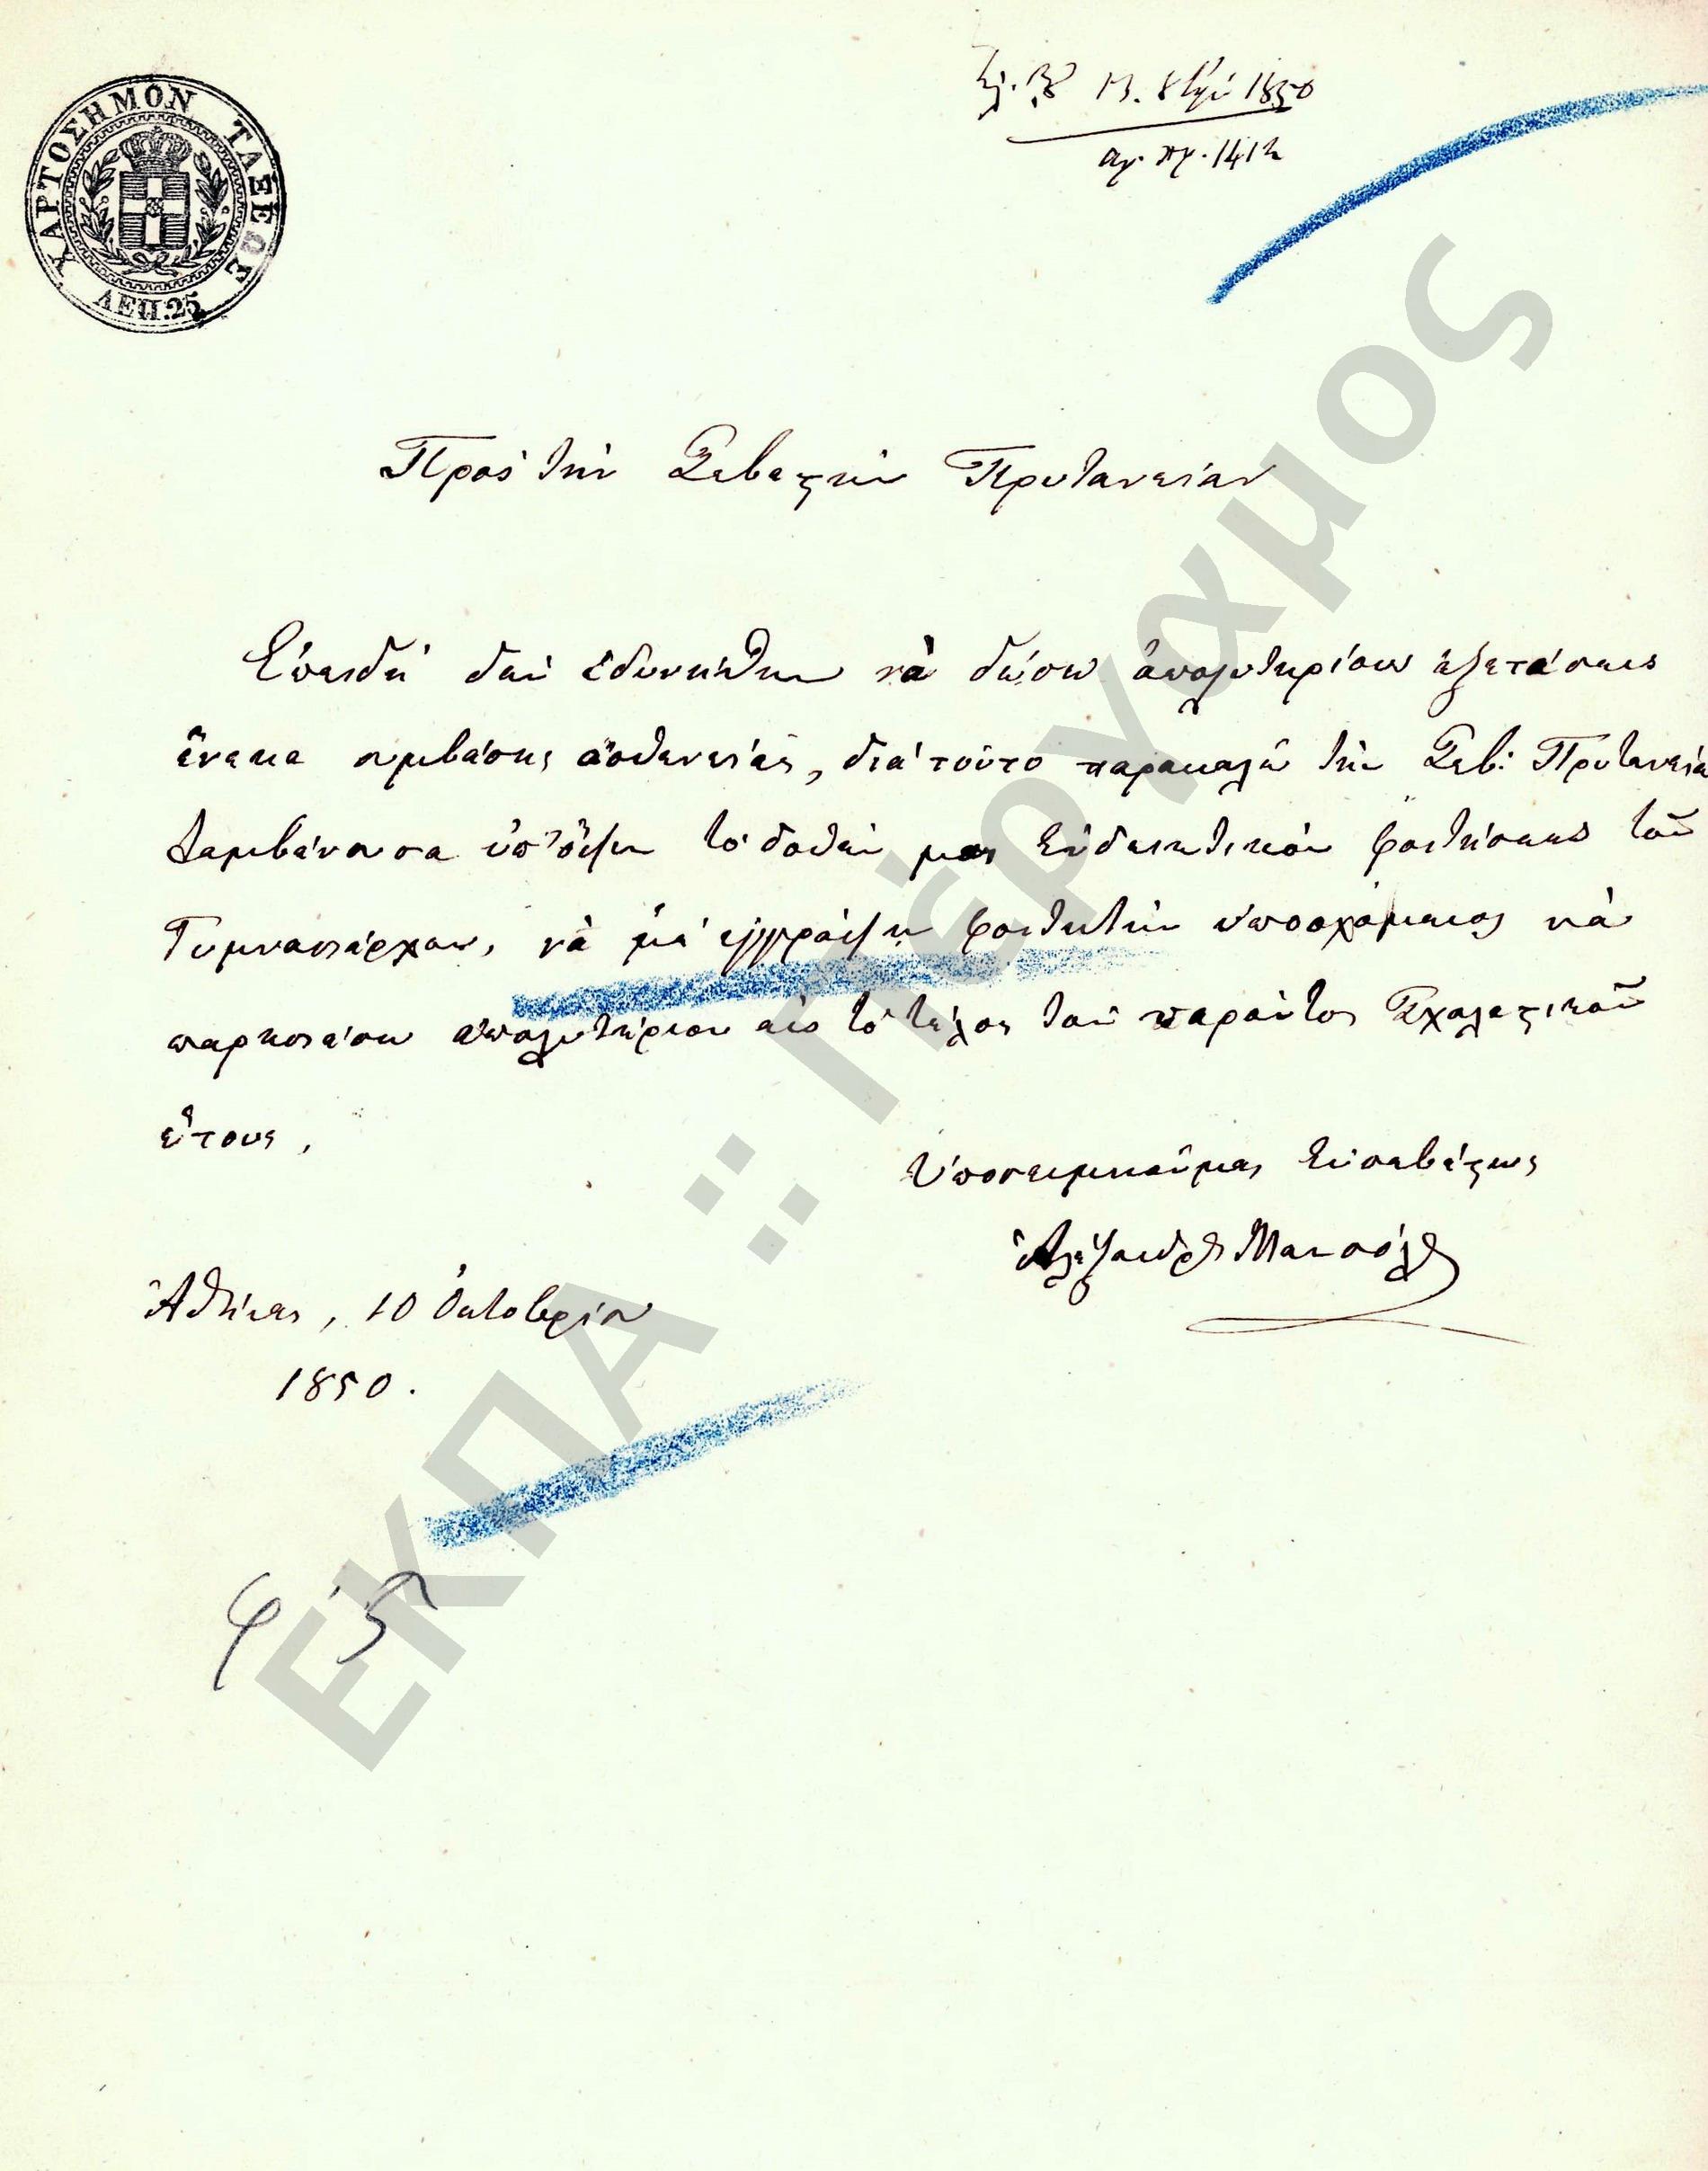 ΧΑΡΤΟΣΗΜΟΝ ΤΑΞΕΩΣ
ΛΕΠ. 25
13. 8βρίου 1850
αρ. πρ. 1412
Πρὸς τὴν Σεβαστὴν Πρυτανείαν
Ἐπειδὴ δὲν ἐδυνήθην νὰ δώσω ἀπολυτηρίους ἐξετάσεις
ἕνεκα συμβάσης ἀσθενείας, διὰ τοῦτο παρακαλῶ τὴν Σεβ: Πρυτανεία
λαμβάνουσα ὑπ' ὄψιν τὸ δοθέν μοι Ἐνδεικτικὸν φοιτήσεως τοῦ
Γυμνασιάρχου, νὰ μὲ ἐγγράψῃ φοιτητὴν ὑποσχόμενος νὰ
παρησιάσω ἀπολυτήριον εἰς τὸ τέλος τοῦ παρόντος Σχολαστικοῦ
ἔτους.
Ὑποσημειοῦμαι Εὐσεβάστως
Ἀλέξανδρος Μανσόλας
Ἀθῆναι, 10 Ὀκτωβρίου
1850.
ΕΚΠΑ :: Πέργαμος